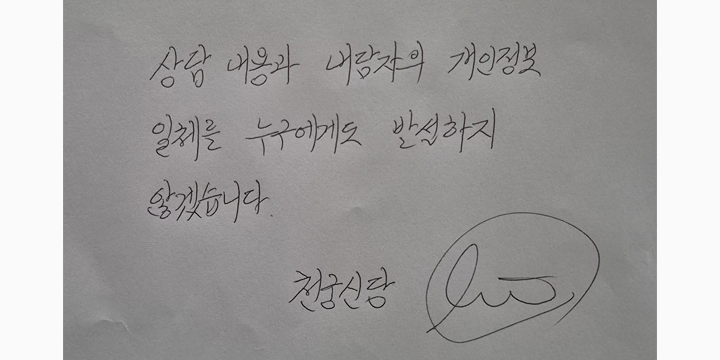 상담 내용과 내담자의 개인정보
일체를 누구에게도 발설하지
않겠습니다.
천궁신당